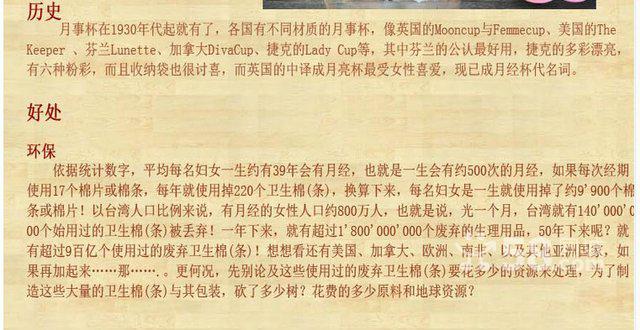 历史
月事杯在1930年代起就有了，各国有不同材质的月事杯，像英国的Mooncup与Femmecup、美国的The
Keeper 、芬兰Lunette、加拿大DivaCup、捷克的Lady Cup等，其中芬兰的公认最好用，捷克的多彩漂亮，
有六种粉彩，而且收纳袋也很讨喜，而英国的中译成月亮杯最受女性喜爱，现已成月经杯代名词。
好处
环保
依据统计数字，平均每名妇女一生约有39年会有月经，也就是一生会有约500次的月经，如果每次经期
使用17个棉片或棉条，每年就使用掉220个卫生棉(条)，换算下来，每名妇女是一生就使用掉了约9'900个棉
条或棉片！以台湾人口比例来说，有月经的女性人口约800万人，也就是说，光一个月，台湾就有140'000'0
00个始用过的卫生棉(条)被丢弃！一年下来，就有超过1'800'000'000个废弃的生理用品，50年下来呢？就
有超过9百亿个使用过的废弃卫生棉(条)！想想看还有美国、加拿大、欧洲、南非、以及其他亚洲国家，如
果再加起来……那……．。更何况，先别论及这些使用过的废弃卫生棉(条)要花多少的资源来处理，为了制
造这些大量的卫生棉(条)与其包装，砍了多少树？花费的多少原料和地球资源？